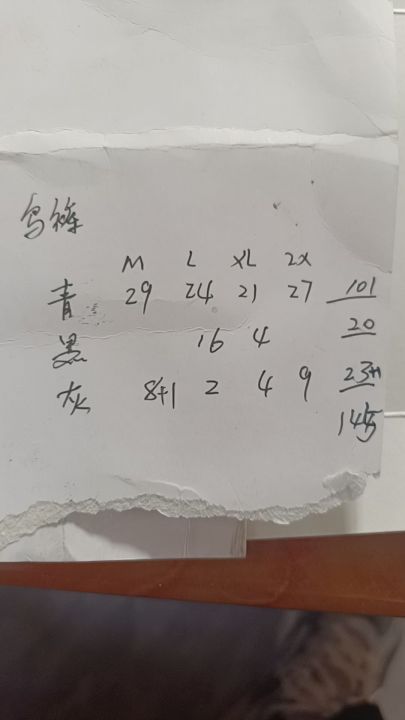 鸟裤
M L XL 2X
青 29 24 21 27 101
黑 16 4 20
灰 8+1 2 4 9 23+1
145